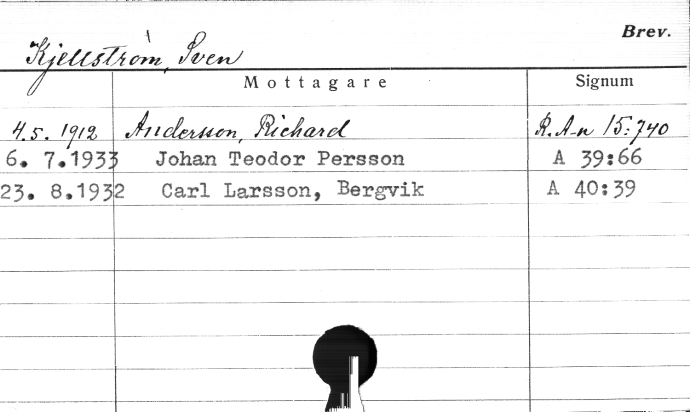 Brev.
Kjellström, Sven
Mottagare Signum
4.5. 1912 Andersson, Richard R.A-n 15:740
6. 7.1933 Johan Teodor Persson A 39:66
23. 8.1932 Carl Larsson, Bergvik A 40:39